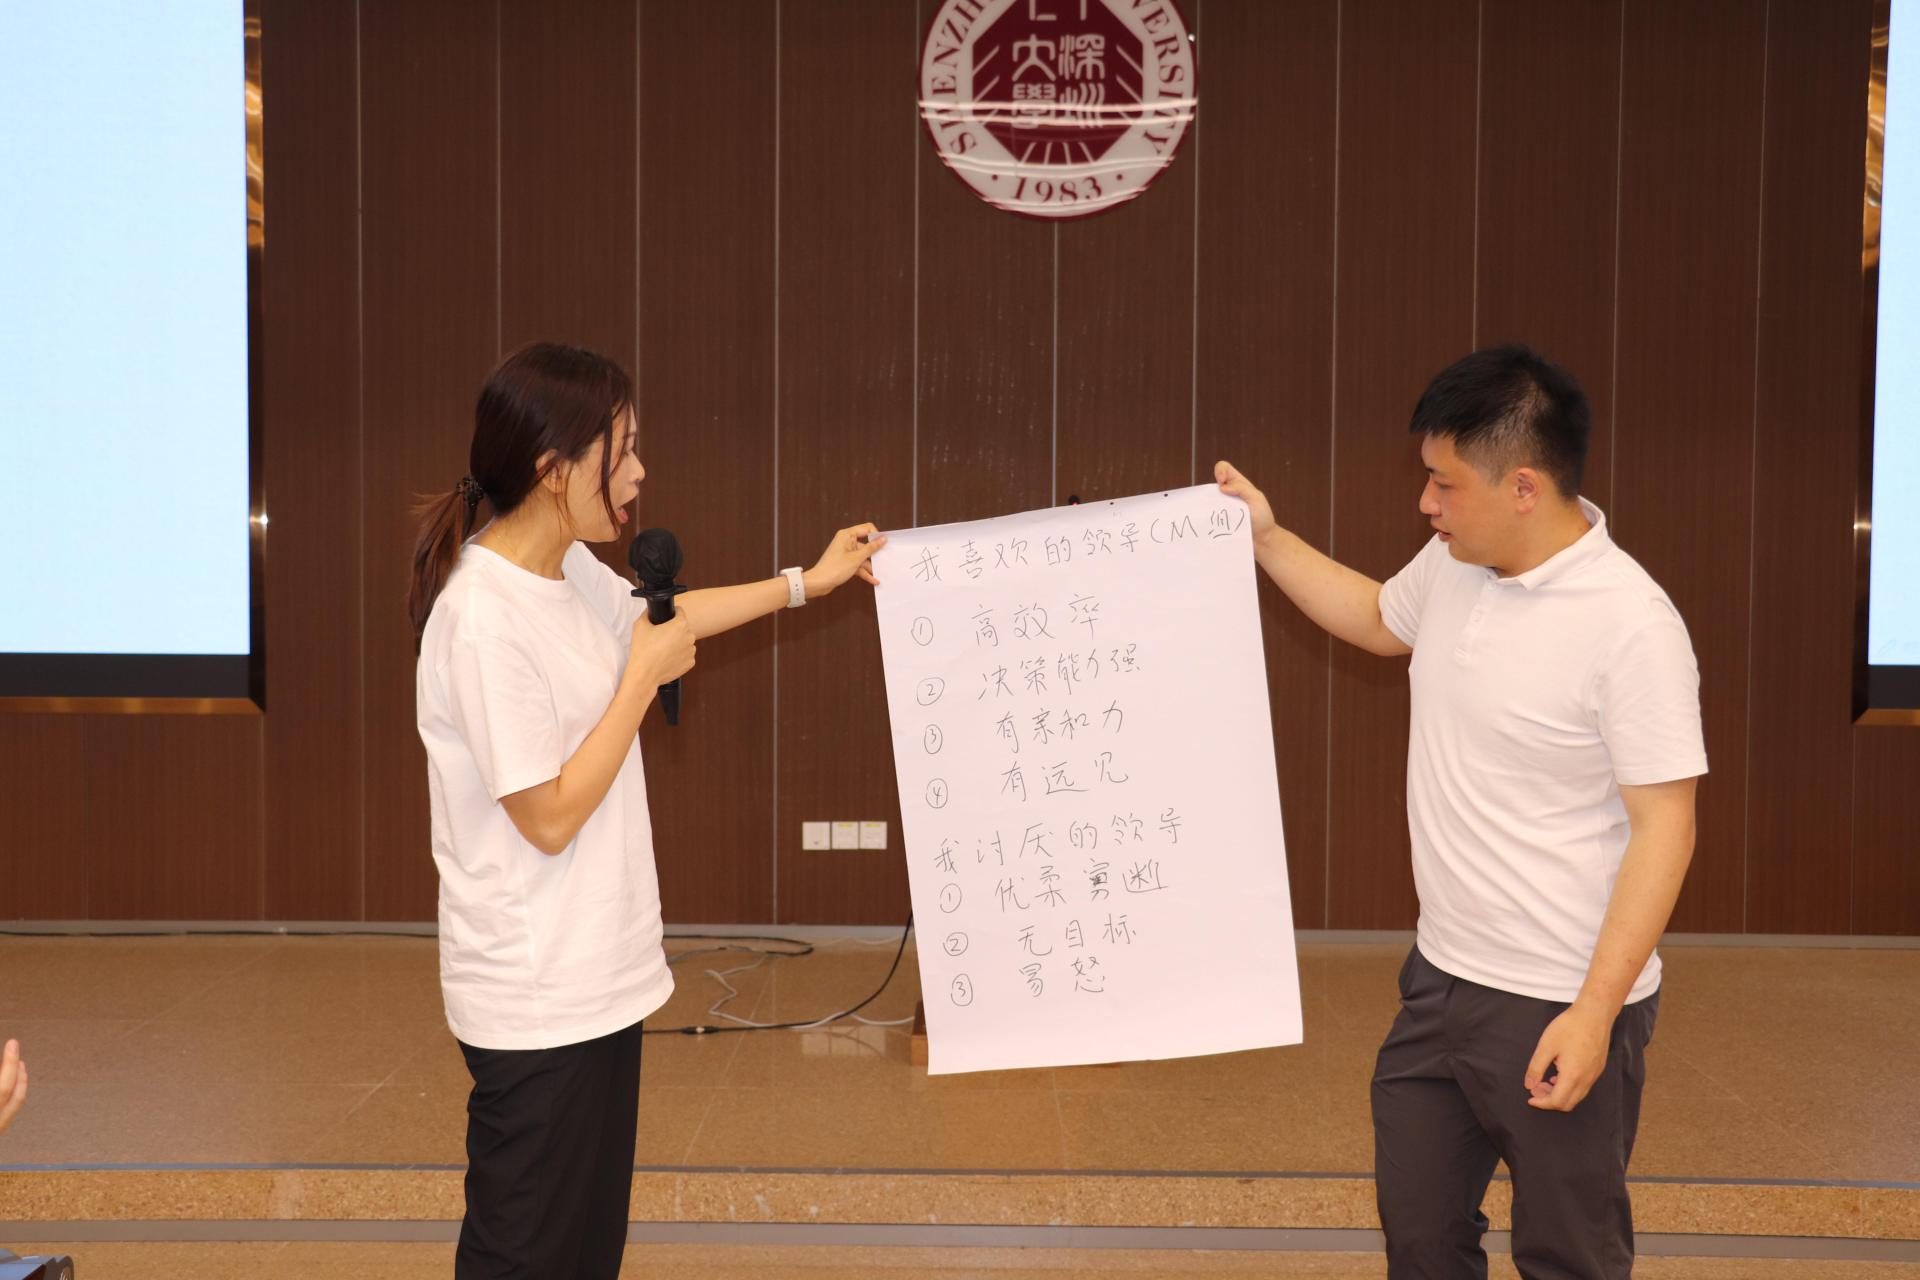 SHENZH VERSITY
深圳
大學
· 1983 ·
我喜欢的领导(M组)
① 高效率
② 决策能力强
③ 有亲和力
④ 有远见
我讨厌的领导
① 优柔寡断
② 无目标
③ 易怒